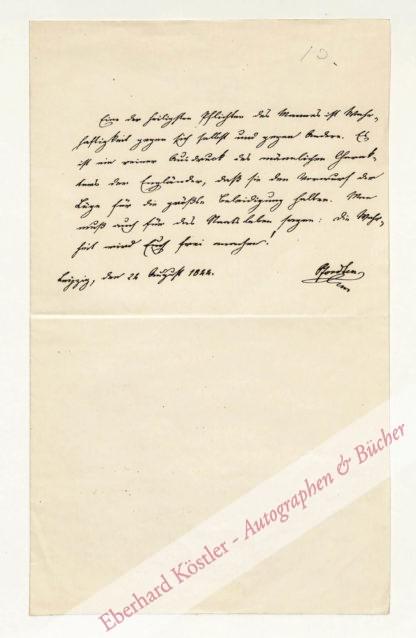 13.
Eine der heiligsten Pflichten des Mannes ist Wahr-
haftigkeit gegen sich selbst und gegen Andere. Es
ist ein reiner Ausdruck des männlichen Charak-
ters der Engländer, daß sie den Vorwurf der
Lüge für die größte Beleidigung halten. Man
muß auch für das Staatsleben sagen: die Wahr-
heit wird Euch frei machen!
Leipzig, den 24 August 1844.
Pfordten
Eberhard Köstler - Autographen & Bücher